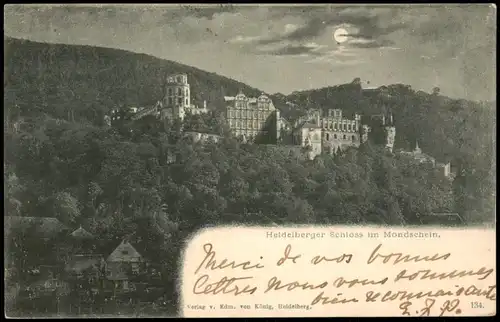 Heidelberger Schloss im Mondschein.
Merci de vos bonnes
cottres nous vous sommes
bien reconnaissants
2.2.99.
Verlag v. Edm. von König, Heidelberg.
134.